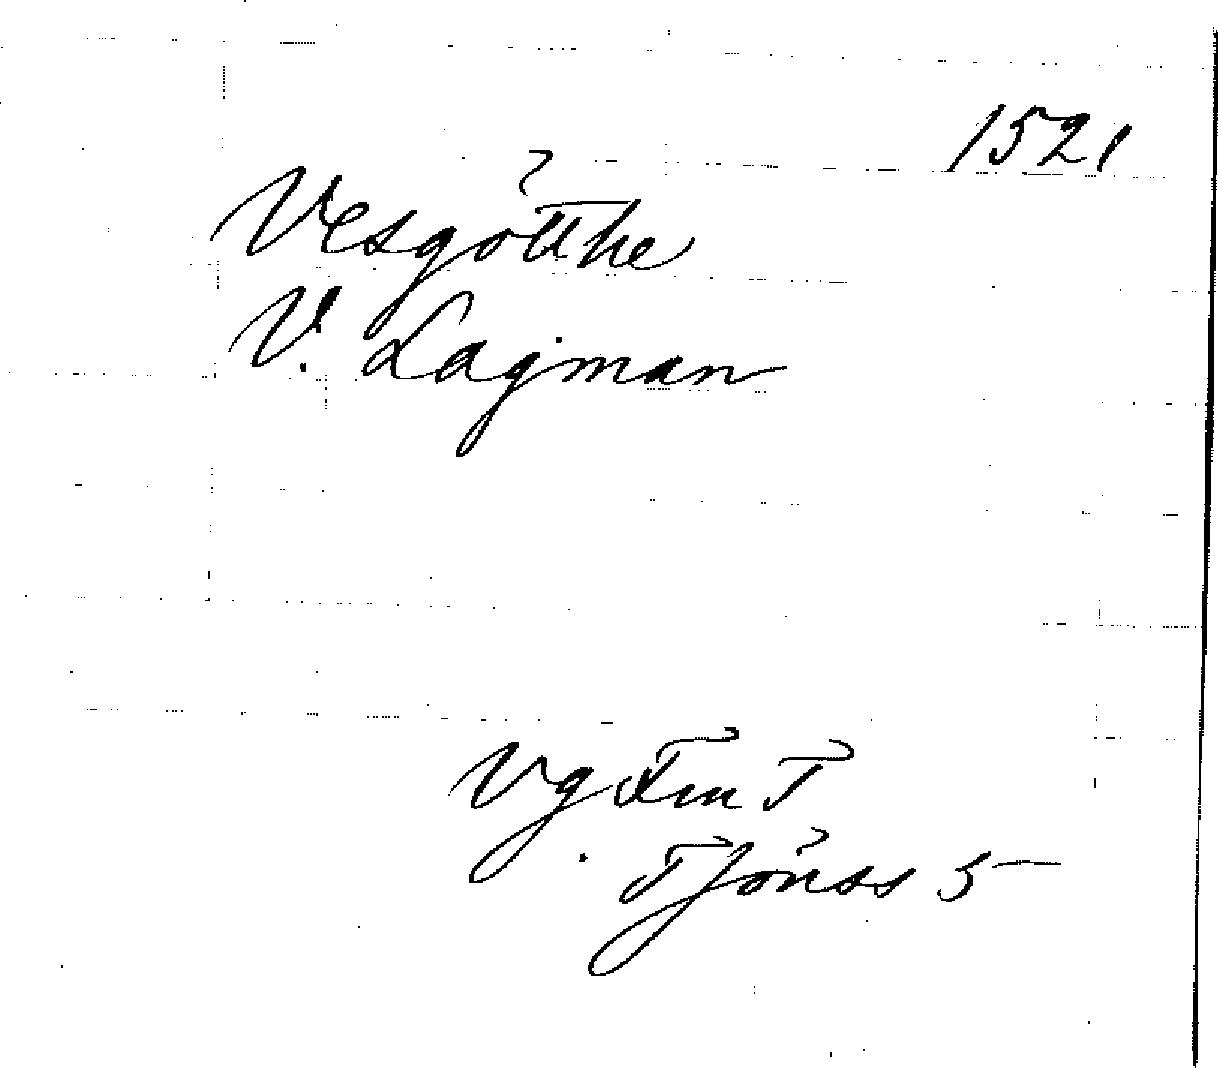 1521
Vesgötthe
V. Lagman
Vg Fm T
Tjönss 5